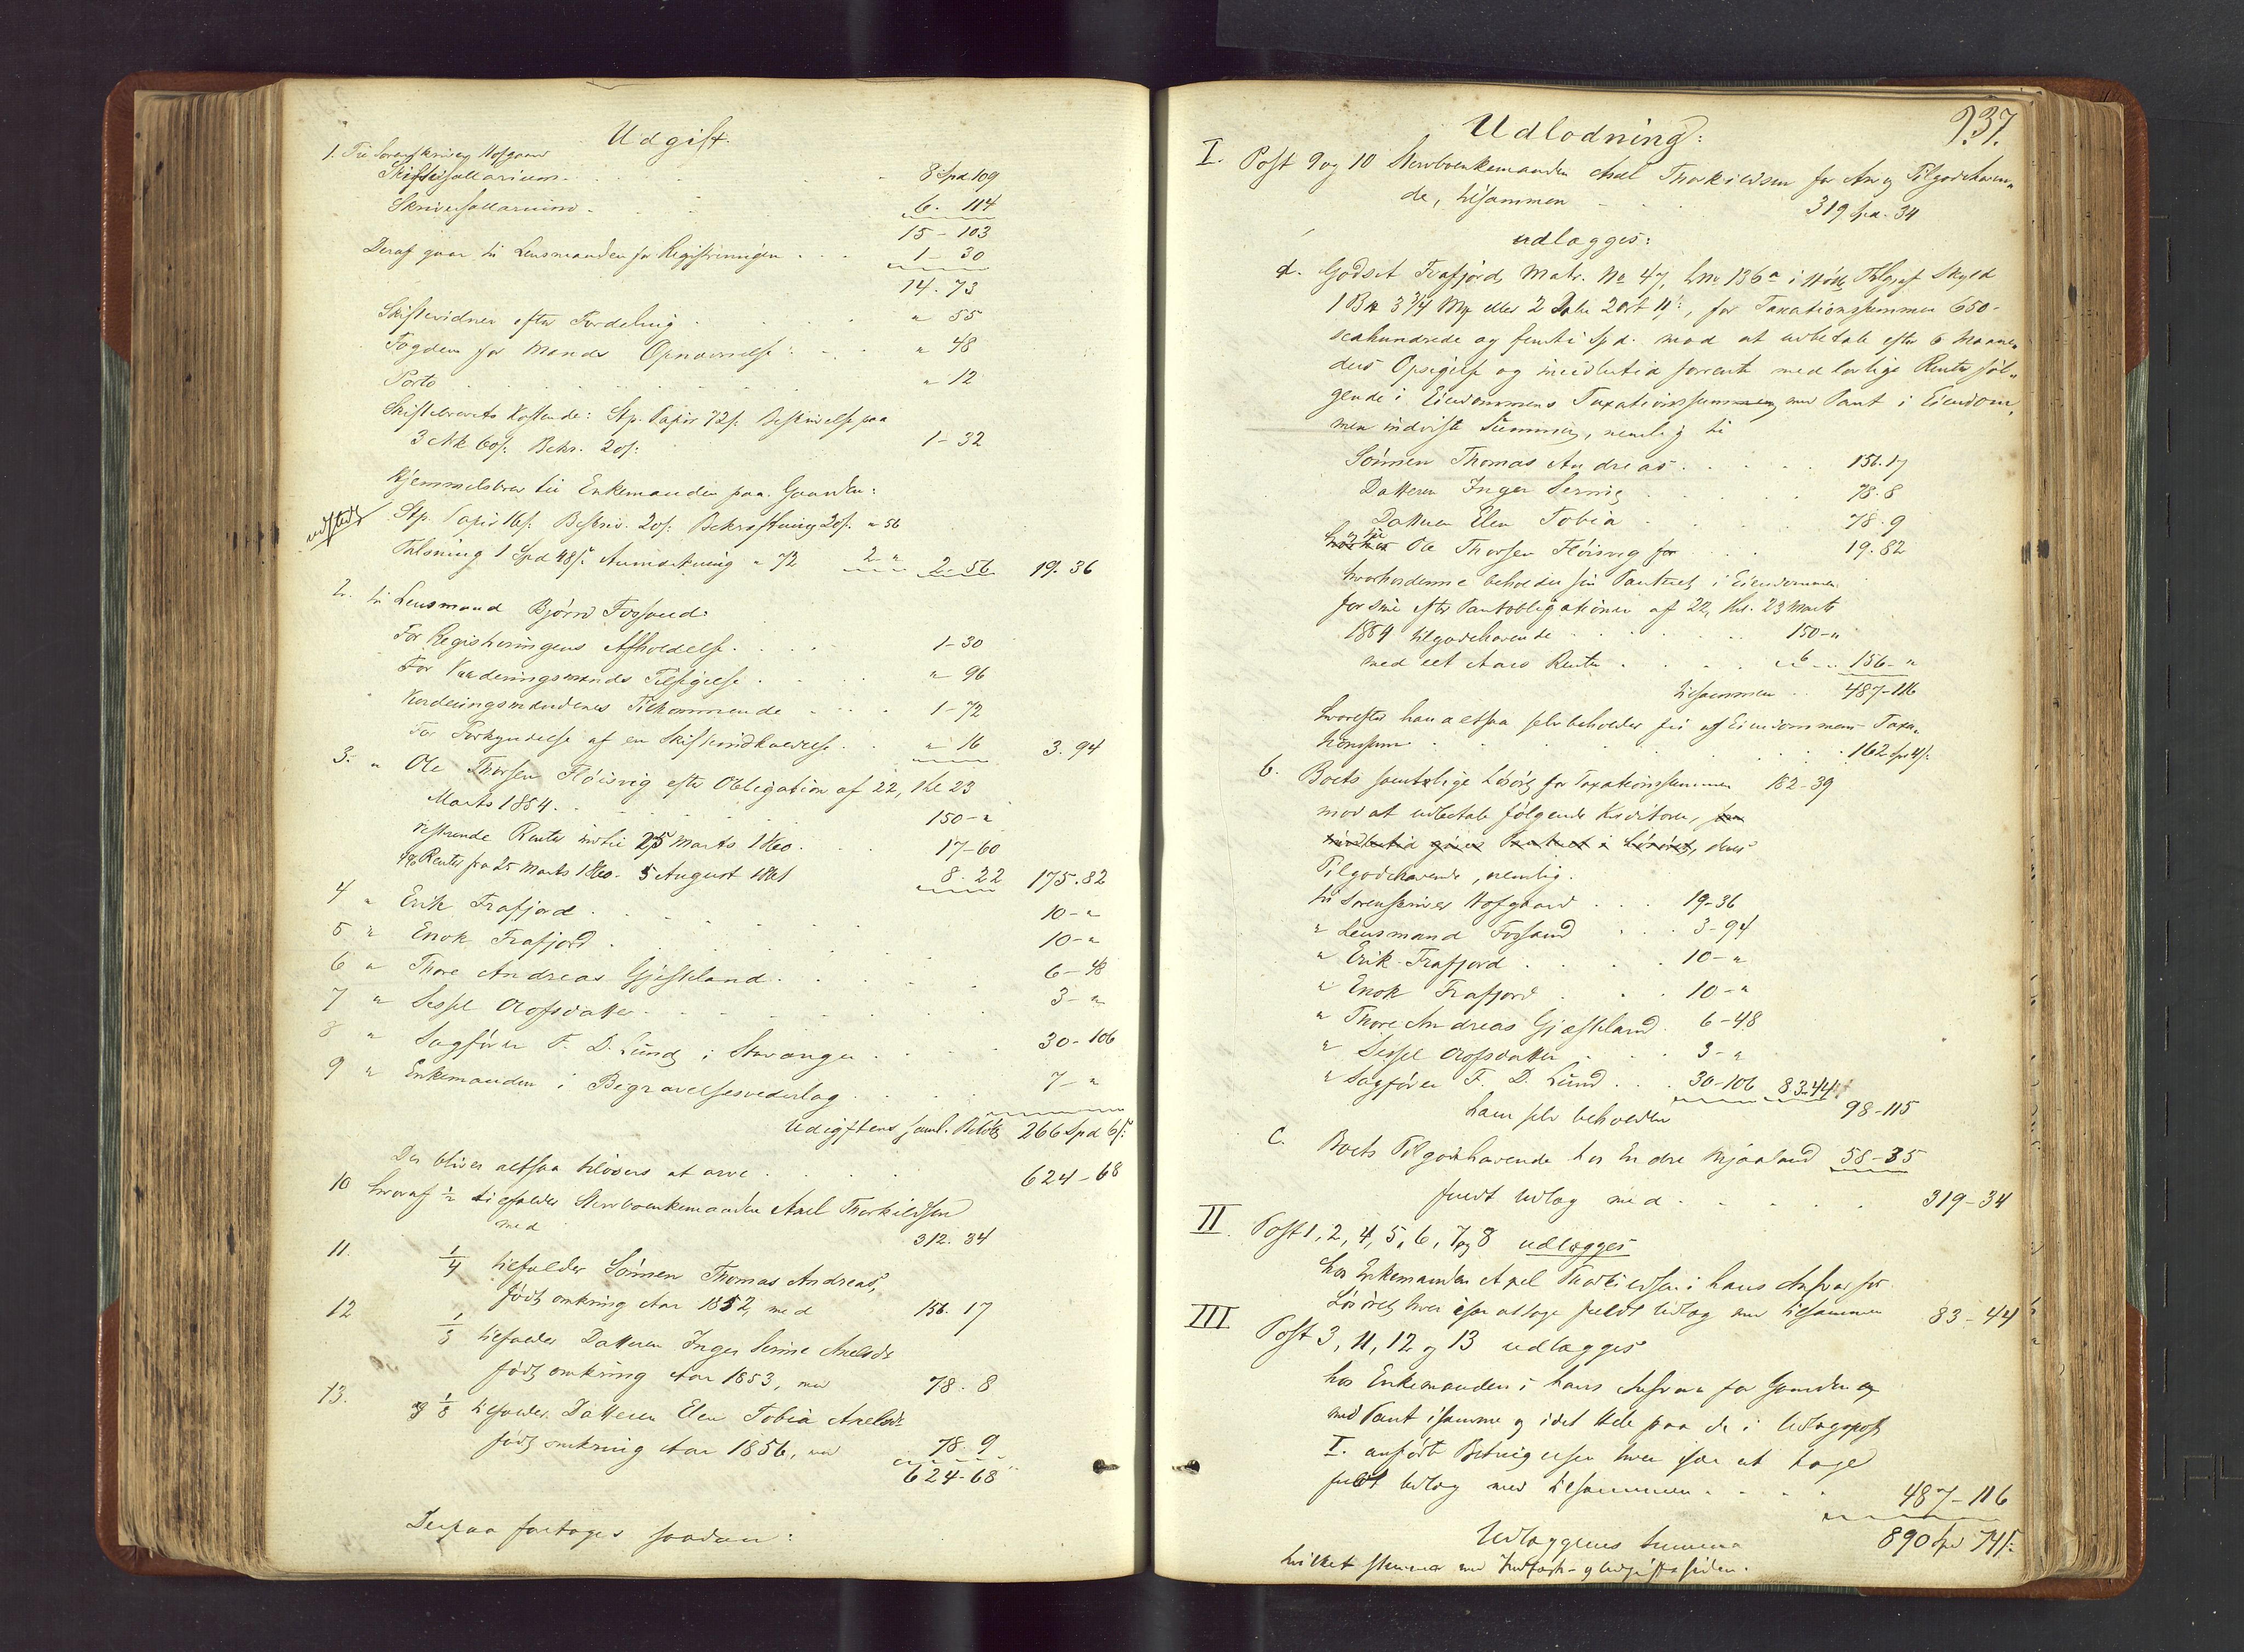 Udgift.
1. Til Sorenskriver Hofgaard
Skiftesallarium 8 Spd. 109
Skriversallarium 6. 114
15 - 103
Deraf gaar til Lensmanden for Registreringen 1 - 30
14. 73
Skiftevidner efter Fordeling " 55
Fogden for Mænds Opnævnelse " 48
Porto " 12
Skiftebrevets Kostende: Stp. Papir 72 s: Beskrivelse paa
3 Ark 60 s: Bekr. 20 s: 1 - 32
Hjemmelsbrev til Enkemanden paa Gaarden:
udstedt
Stp. Papir 16 s: Beskriv. 20 s: Bekræftning 20 s: " 56
Thlæsning 1 Spd 48 s: Anmærkning " 72 2 " 2 - 56 19. 36
2. til Lensmand Bjørn Fossand:
For Registreringens Afholdelse 1 - 30
For Vurderingsmænds Tilsigelse " 96
Vurderingsmændenes Tilkommende 1 - 72
For Forkyndelse af en Skifteindkaldelse " 16 3. 94
3. " Ole Thorsen Fløisvig efter Obligation af 22, thl 23
Marts 1854 150 - "
resterende Renter indtil 25 Marts 1860 17 - 60
4% Renter fra 25 Marts 1860 - 5 August 1861 8. 22 175. 82
4 " Erik Frafjord 10 - "
5 " Enok Frafjord 10 - "
6 " Thore Andreas Gjæskeland 6 - 48
7 " Sissel Olofsdatter 3 - "
8 " Sagfører F. D. Lund i Stavanger 30 - 106
9 " Enkemanden i Begravelsesvederlag 7 - "
Udgiftens saml. Beløb 266 Spd 6 s:
Der bliver altsaa tilovers at arve 624 - 68
10 hvoraf 1/2 tilfalder Stervboenkemanden Axel Thorkildsen
med 312. 34
11. 1/4 tilfalder Sønnen Thomas Andreas,
født omkring Aar 1852, med 156. 17
12 1/8 tilfalder Datteren Inger Serine Axelsdr
født omkring Aar 1853, med 78. 8
13. og 1/8 tilfalder Datteren Elen Tobia Axelsdr
født omkring Aar 1856, med 78. 9
624 - 68
Derpaa foretoges saadan:
937.
Udlodning:
I. Post 9 og 10 Stervboenkemanden Axel Thorkildsen for Arv og Tilgodehaven-
de, tilsammen 319 Spd. 34
udlægges:
a. Godset Frafjord, Matr. No 47, LNo 136a i Høle Thlg, af Skyld
1 B# 3 3/4 Mk eller 2 Dlr 2 ort 11 s:, for Taxationssummen 650 -
sexhundrede og femti Spd. mod at udbetale efter 6 Maane-
ders Opsigelse og imidlertid forrente med lovlige Renter føl-
gende i Eiendommens Taxationssum med Pant i Eiendom-
men indviste Summer, nemlig til
Sønnen Thomas Andreas 156. 17
Datteren Inger Serine 78. 8
Datteren Elen Tobia 78. 9
og til Ole Thorsen Fløisvig for 19. 82
hvorhos denne beholder sin Panteret i Eiendommen
for sine efter Pantobligationen af 22, thl. 23 Marts
1854 tilgodehavende 150 - "
med eet Aars Renter 6 - " 156 - "
tilsammen 487 - 116
hvorefter han altsaa selv beholder fri af Eiendommens Taxa-
tionssum 162 Spd 4 s:
b. Boets samtlige Løsøre for Taxationssummen 182 - 39
mod at udbetale følgende Kreditorer, som
imidlertid gives Panteret i Løsøret, deres
Tilgodehavende, nemlig:
til Sorenskriver Hofgaard 19 - 36
" Lensmand Fossand 3 - 94
" Erik Frafjord 10 - "
" Enok Frafjord 10 - "
" Thore Andreas Gjæskeland 6 - 48
" Sissel Olofsdatter 3 - "
" Sagfører F. D. Lund 30 - 106 83 - 44
ham selv beholden 98 - 115
c. Boets Tilgodehavende hos Endre Mjaaland 58 - 35
fuldt Udlæg med 319 - 34
II. Post 1, 2, 4, 5, 6, 7 og 8 udlægges
hos Enkemanden Axel Thorkildsen i hans Ansvar for
Løsøret, hver især at tage fuldt Udlæg med tilsammen 83 - 44
III Post 3, 11, 12 og 13 udlægges
hos Enkemanden i hans Ansvar for Gaarden og
med Pant i samme og i det Hele paa de i Udlægspost
I. anførte Betingelser hver især at tage
fuldt Udlæg med tilsammen 487 - 116
Udlæggenes Summa 890 Spd 74 s:
hvilket stemmer med Indtægts- og Udgiftssiden.